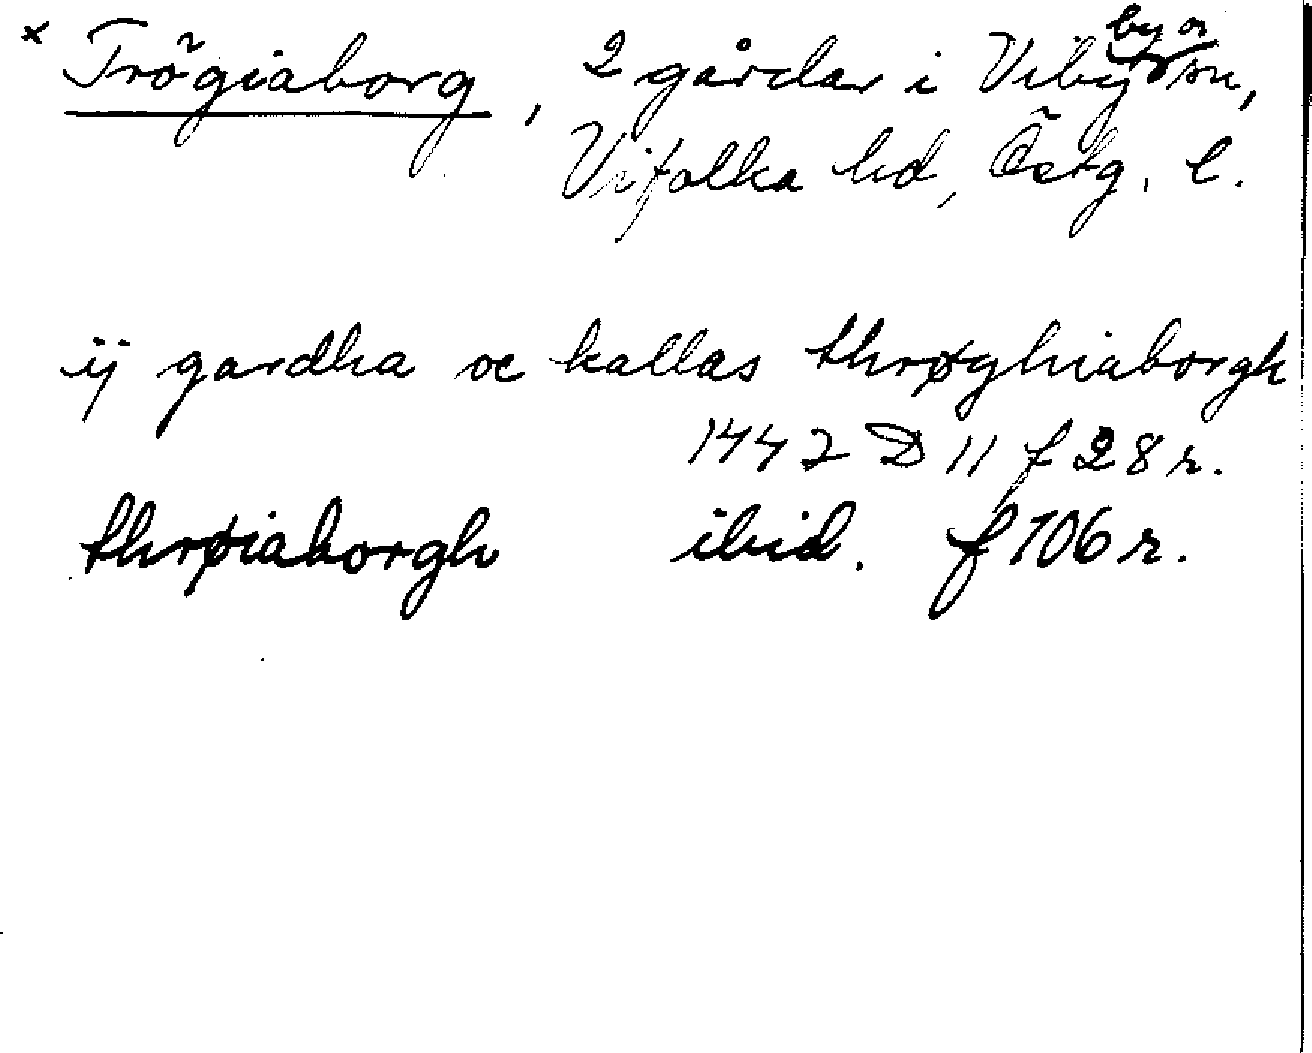 × Trögiaborg, 2 gårdar i Viby by o sn,
Vifolka hd, Östg. l.
ij gardha oc kallas thrøghiaborgh
1447 D 11 f 28 r.
thrøiaborgh ibid. f 106 r.